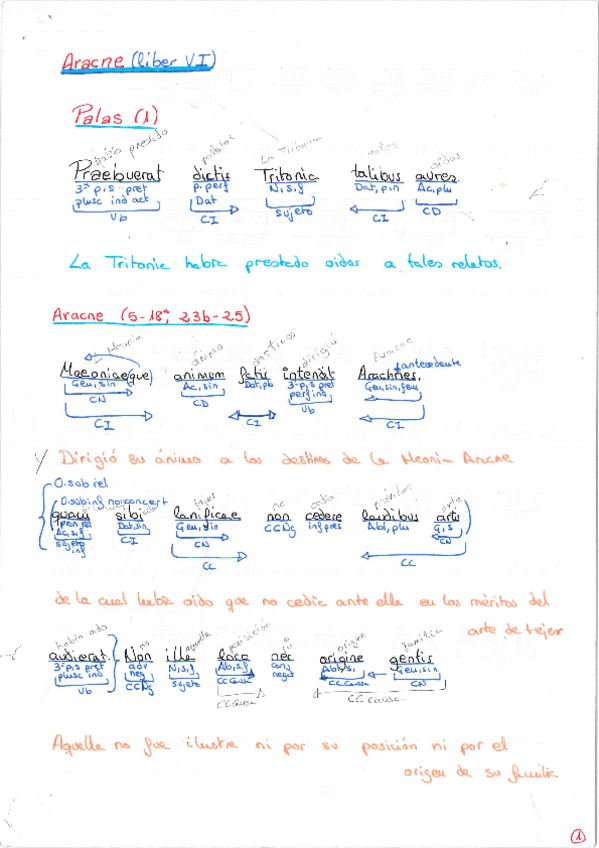 Aracne (liber VI)
Palas (1)
había prestado palabras La Tritonia tales oidos
Praebuerat dictis Tritonia talibus aures.
3ª p,s pret p. perf N,s,f Dat,p,n Ac,plu
plusc ind act Dat
Vb CI sujeto CI CD
La Tritonia había prestado oidos a tales relatos.
Aracne (5-18ª; 23b-25)
Meonia ánimo destinos dirigió Aracne
Maeoniae(que) animum fatis intendit Arachnes,
antecedente
Gen,sin Ac,sin Dat,pl 3ª p,s pret Gen,sin,fem
perf ind
CN CD CI Vb
CI CI
Dirigió su ánimo a los destinos de la Meonia Aracne
O.sub rel
O.sub inf no concert
tejer no cedia méritos arte
quam sibi lanificae non cedere laudibus artis
pron rel Dat,sin Gen,sin CCNg inf pres Abl,plu G,s
Ac,s,f
sujeto inf CI CN CN
CC CC
de la cual había oido que no cedia ante ella en los méritos del
arte de tejer
había oido no aquella posición ni origen familia
audierat. Non illa loco nec origine gentis
3ª p,s pret adv N,s,f Ab,s,f conj Ab,s, Gen,sin
plusc ind neg negat
Vb CCNg sujeto CCCausa CCCausa CN
CCCausa CC Causa
Aquella no fue ilustre ni por su posición ni por el
origen de su familia
1